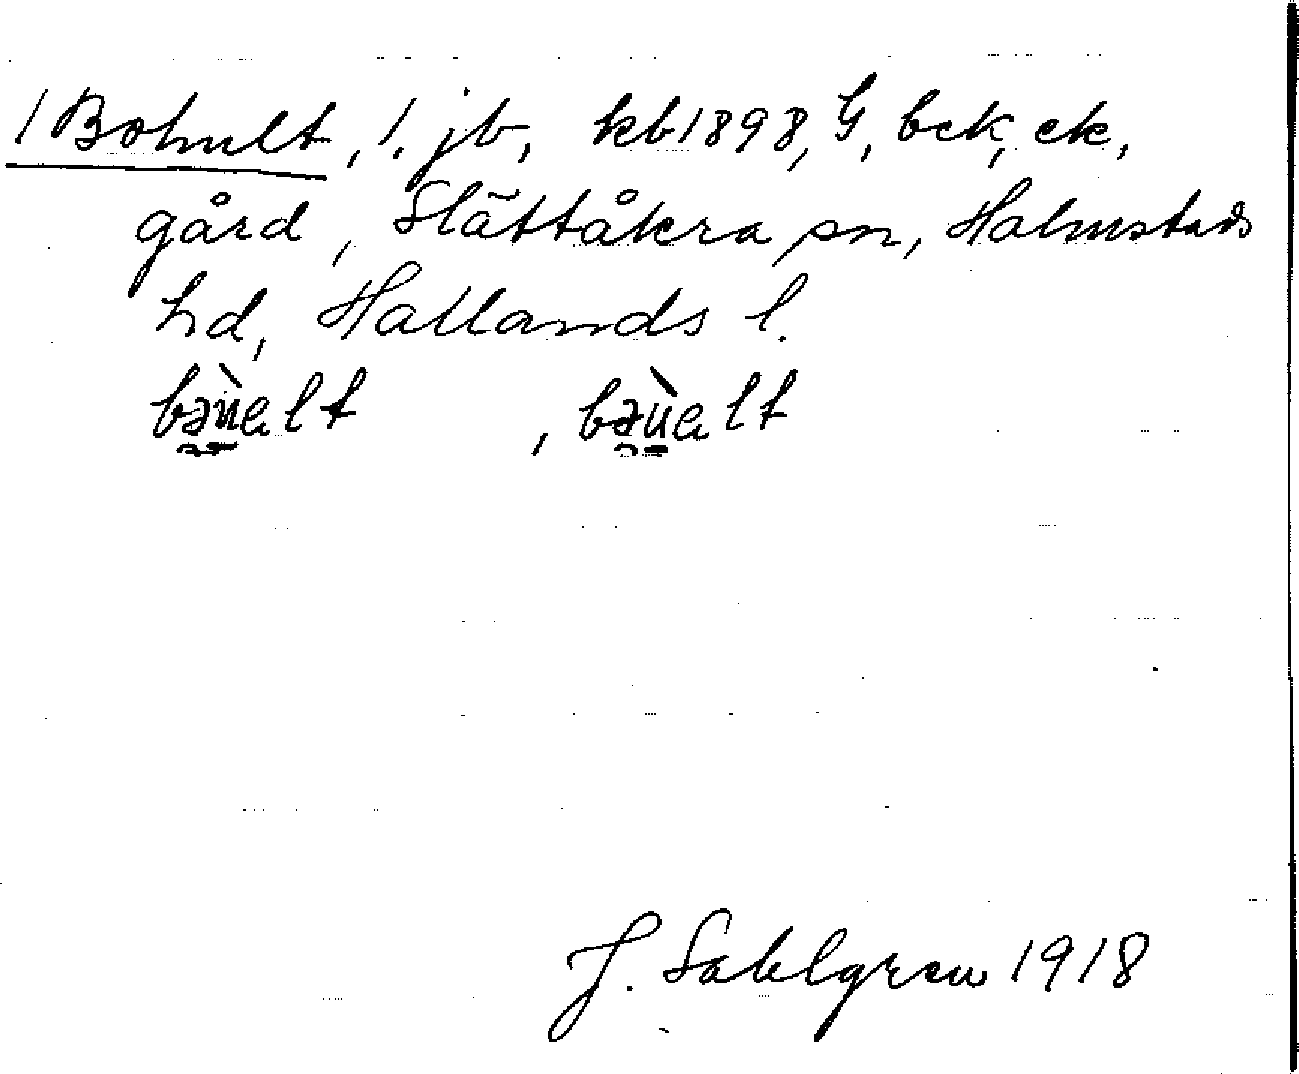 1 Bohult, 1. jb, kb 1898, G, bck, ek,
gård, Slättåkra sn, Halmstads
hd, Hallands l.
bəu̇̀alt, bəu̇̀alt
J. Sahlgren 1918